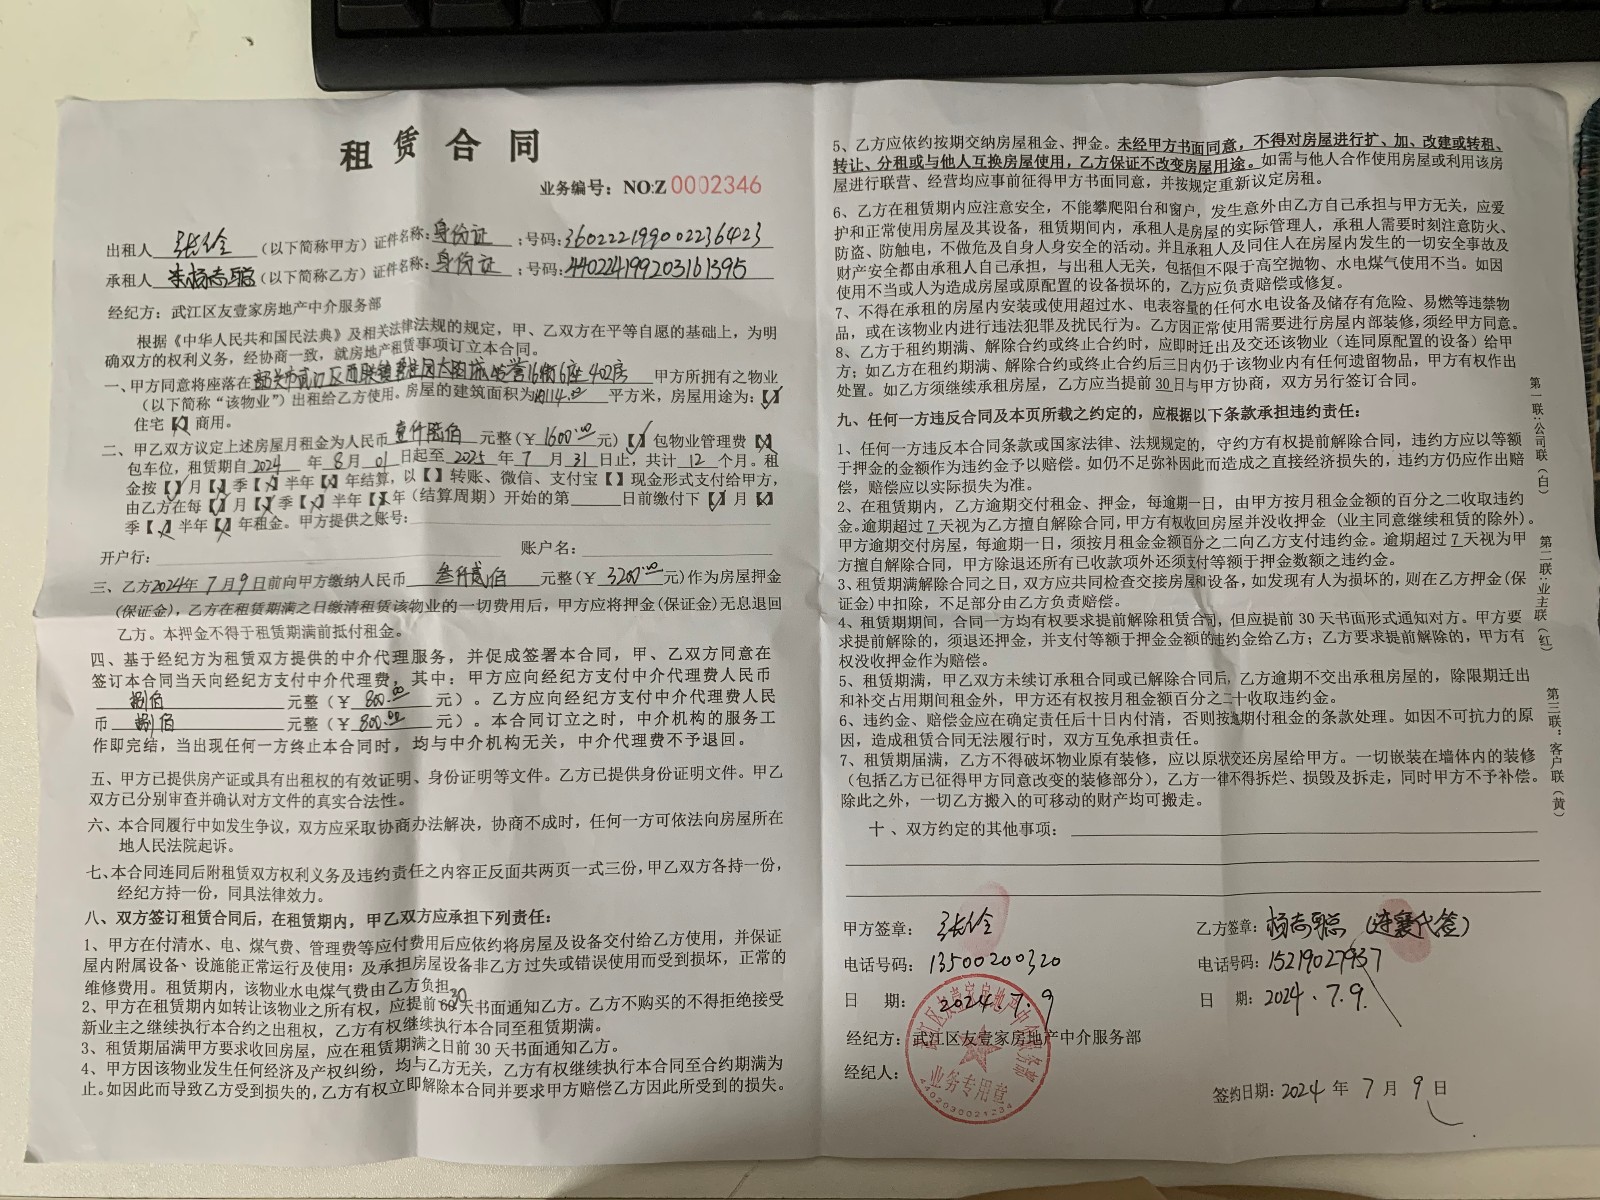 租赁合同
业务编号：NO:Z 0002346
出租人 （以下简称甲方）证件名称：身份证 ；号码：360222199002236423
承租人 杨志聪（以下简称乙方）证件名称：身份证 ；号码：440224199203161395
经纪方：武江区友壹家房地产中介服务部
根据《中华人民共和国民法典》及相关法律法规的规定，甲、乙双方在平等自愿的基础上，为明
确双方的权利义务，经协商一致，就房地产租赁事项订立本合同。
一、甲方同意将座落在 韶关市武江区西联镇碧桂园太阳城 16街6座402房 甲方所拥有之物业
（以下简称“该物业”）出租给乙方使用。房屋的建筑面积为 约114.00 平方米，房屋用途为：【✓】
住宅【×】商用。
二、甲乙双方议定上述房屋月租金为人民币 壹仟陆佰 元整（￥ 1600.00 元）【✓】包物业管理费【×】
包车位，租赁期自 2024 年 8 月 01 日起至 2025 年 7 月 31 日止，共计 12 个月。租
金按【✓】月【×】季【×】半年【×】年结算，以【 】转账、微信、支付宝【 】现金形式支付给甲方，
由乙方在每【✓】月【×】季【×】半年【×】年（结算周期）开始的第 日前缴付下【✓】月【×】
季【×】半年【×】年租金。甲方提供之账号：
开户行： 账户名：
三、乙方2024年7月9日前向甲方缴纳人民币 叁仟贰佰 元整（￥ 3200.00 元）作为房屋押金
(保证金)，乙方在租赁期满之日缴清租赁该物业的一切费用后，甲方应将押金(保证金)无息退回
乙方。本押金不得于租赁期满前抵付租金。
四、基于经纪方为租赁双方提供的中介代理服务，并促成签署本合同，甲、乙双方同意在
签订本合同当天向经纪方支付中介代理费，其中：甲方应向经纪方支付中介代理费人民币
捌佰 元整（￥ 800.00 元）。乙方应向经纪方支付中介代理费人民
币 捌佰 元整（￥ 800.00 元）。本合同订立之时，中介机构的服务工
作即完结，当出现任何一方终止本合同时，均与中介机构无关，中介代理费不予退回。
五、甲方已提供房产证或具有出租权的有效证明、身份证明等文件。乙方已提供身份证明文件。甲乙
双方已分别审查并确认对方文件的真实合法性。
六、本合同履行中如发生争议，双方应采取协商办法解决，协商不成时，任何一方可依法向房屋所在
地人民法院起诉。
七、本合同连同后附租赁双方权利义务及违约责任之内容正反面共两页一式三份，甲乙双方各持一份，
经纪方持一份，同具法律效力。
八、双方签订租赁合同后，在租赁期内，甲乙双方应承担下列责任：
1、甲方在付清水、电、煤气费、管理费等应付费用后应依约将房屋及设备交付给乙方使用，并保证
屋内附属设备、设施能正常运行及使用；及承担房屋设备非乙方过失或错误使用而受到损坏，正常的
维修费用。租赁期内，该物业水电煤气费由乙方负担。
2、甲方在租赁期内如转让该物业之所有权，应提前 60 30 天书面通知乙方。乙方不购买的不得拒绝接受
新业主之继续执行本合约之出租权，乙方有权继续执行本合同至租赁期满。
3、租赁期届满甲方要求收回房屋，应在租赁期满之日前30天书面通知乙方。
4、甲方因该物业发生任何经济及产权纠纷，均与乙方无关，乙方有权继续执行本合同至合约期满为
止。如因此而导致乙方受到损失的，乙方有权立即解除本合同并要求甲方赔偿乙方因此所受到的损失。
5、乙方应依约按期交纳房屋租金、押金。未经甲方书面同意，不得对房屋进行扩、加、改建或转租、
转让、分租或与他人互换房屋使用，乙方保证不改变房屋用途。如需与他人合作使用房屋或利用该房
屋进行联营、经营均应事前征得甲方书面同意，并按规定重新议定房租。
6、乙方在租赁期内应注意安全，不能攀爬阳台和窗户，发生意外由乙方自己承担与甲方无关，应爱
护和正常使用房屋及其设备，租赁期间内，承租人是房屋的实际管理人，承租人需要时刻注意防火、
防盗、防触电，不做危及自身人身安全的活动。并且承租人及同住人在房屋内发生的一切安全事故及
财产安全都由承租人自己承担，与出租人无关，包括但不限于高空抛物、水电煤气使用不当。如因
使用不当或人为造成房屋或原配置的设备损坏的，乙方应负责赔偿或修复。
7、不得在承租的房屋内安装或使用超过水、电表容量的任何水电设备及储存有危险、易燃等违禁物
品，或在该物业内进行违法犯罪及扰民行为。乙方因正常使用需要进行房屋内部装修，须经甲方同意。
8、乙方于租约期满、解除合约或终止合约时，应即时迁出及交还该物业（连同原配置的设备）给甲
方；如乙方在租约期满、解除合约或终止合约后三日内仍于该物业内有任何遗留物品，甲方有权作出
处置。如乙方须继续承租房屋，乙方应当提前30日与甲方协商，双方另行签订合同。
九、任何一方违反合同及本页所载之约定的，应根据以下条款承担违约责任：
1、任何一方违反本合同条款或国家法律、法规规定的，守约方有权提前解除合同，违约方应以等额
于押金的金额作为违约金予以赔偿。如仍不足弥补因此而造成之直接经济损失的，违约方仍应作出赔
偿，赔偿应以实际损失为准。
2、在租赁期内，乙方逾期交付租金、押金，每逾期一日，由甲方按月租金金额的百分之二收取违约
金。逾期超过 7 天视为乙方擅自解除合同，甲方有权收回房屋并没收押金（业主同意继续租赁的除外）。
甲方逾期交付房屋，每逾期一日，须按月租金金额百分之二向乙方支付违约金。逾期超过 7 天视为甲
方擅自解除合同，甲方除退还所有已收款项外还须支付等额于押金数额之违约金。
3、租赁期满解除合同之日，双方应共同检查交接房屋和设备，如发现有人为损坏的，则在乙方押金(保
证金)中扣除，不足部分由乙方负责赔偿。
4、租赁期期间，合同一方均有权要求提前解除租赁合同，但应提前30天书面形式通知对方。甲方要
求提前解除的，须退还押金，并支付等额于押金金额的违约金给乙方；乙方要求提前解除的，甲方有
权没收押金作为赔偿。
5、租赁期满，甲乙双方未续订承租合同或已解除合同后，乙方逾期不交出承租房屋的，除限期迁出
和补交占用期间租金外，甲方还有权按月租金额百分之二十收取违约金。
6、违约金、赔偿金应在确定责任后十日内付清，否则按逾期付租金的条款处理。如因不可抗力的原
因，造成租赁合同无法履行时，双方互免承担责任。
7、租赁期届满，乙方不得破坏物业原有装修，应以原状交还房屋给甲方。一切嵌装在墙体内的装修
（包括乙方已征得甲方同意改变的装修部分），乙方一律不得拆烂、损毁及拆走，同时甲方不予补偿。
除此之外，一切乙方搬入的可移动的财产均可搬走。
十、双方约定的其他事项：
甲方签章： 乙方签章：杨志聪（连襄代签）
电话号码：13500200320 电话号码：15219027937
日 期：2024.7.9 日 期：2024.7.9.
经纪方：武江区友壹家房地产中介服务部
经纪人：
签约日期：2024 年 7 月 9 日
武江区友壹家房地产中介服务部
业务专用章
4402030021234
第一联：公司联（白）
第二联：业主联（红）
第三联：客户联（黄）